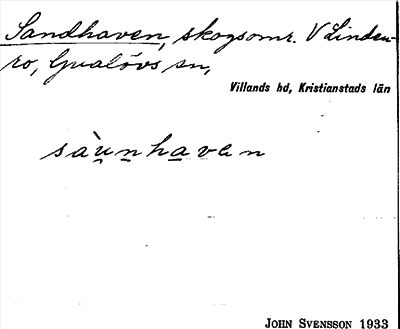 Sandhaven, skogsomr. V Linden-
ro, Gualövs sn,
Villands hd, Kristianstads län
sàu̱ṉha̱ven
JOHN SVENSSON 1933